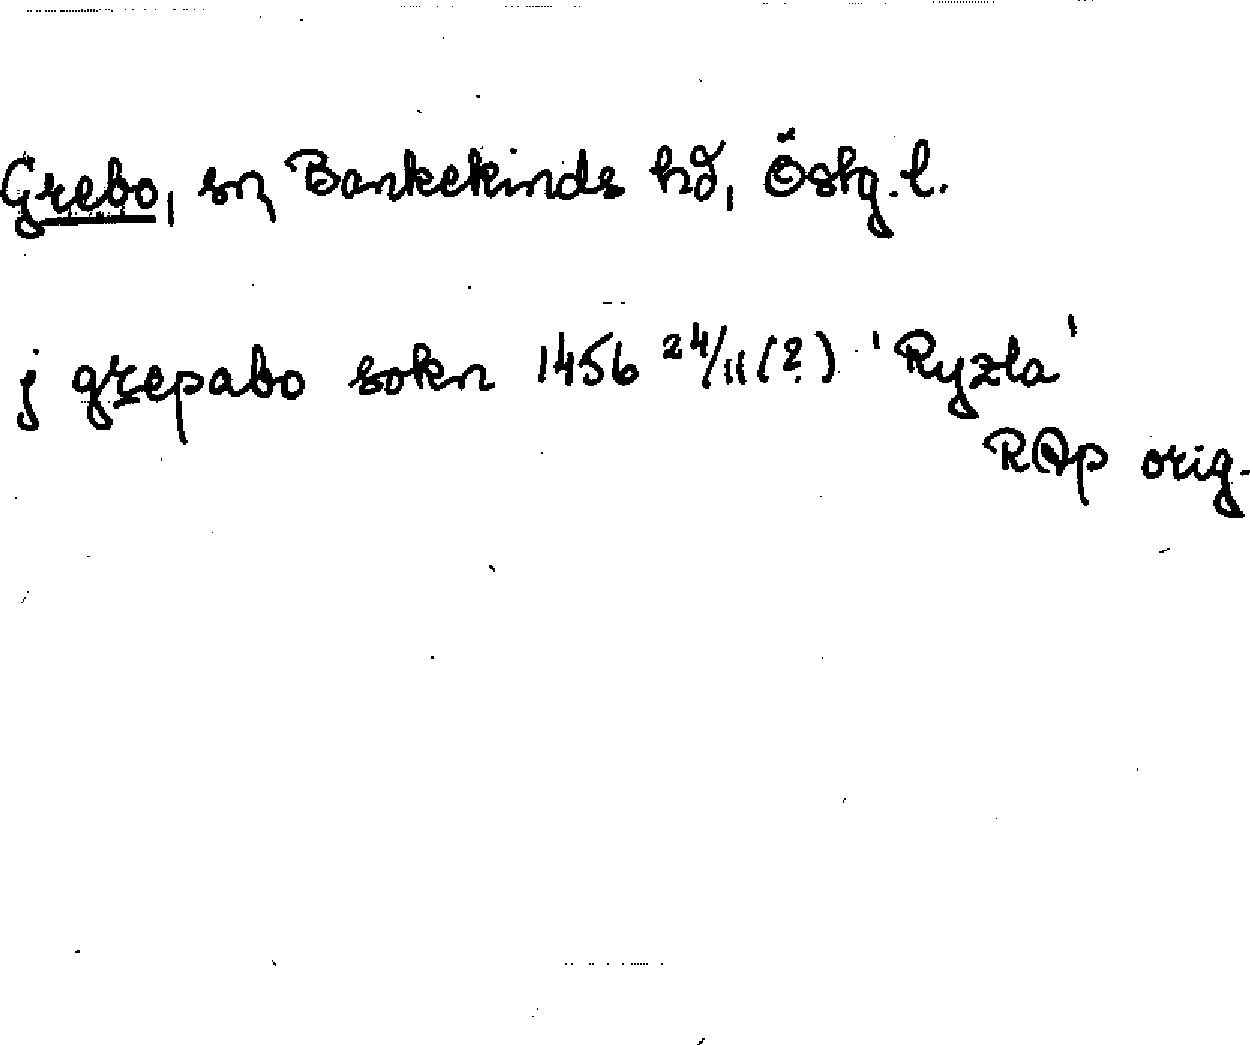 Grebo, sn Bankekinds hd, Östg. l.
j grepabo sokn 1456 24/11 (?) 'Ryzta'
RAp orig.